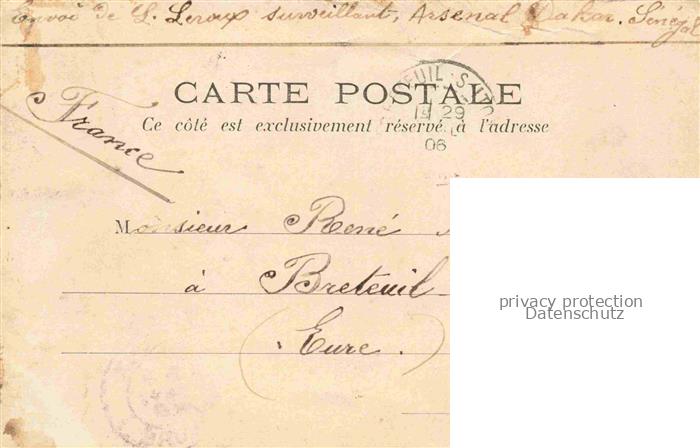 Envoi de L. Leroux surveillant, Arsenal Dakar. Sénégal
CARTE POSTALE
Ce côté est exclusivement réservé à l'adresse
France
19 29
06
Monsieur René
à Breteuil
(Eure.)
privacy protection
Datenschutz